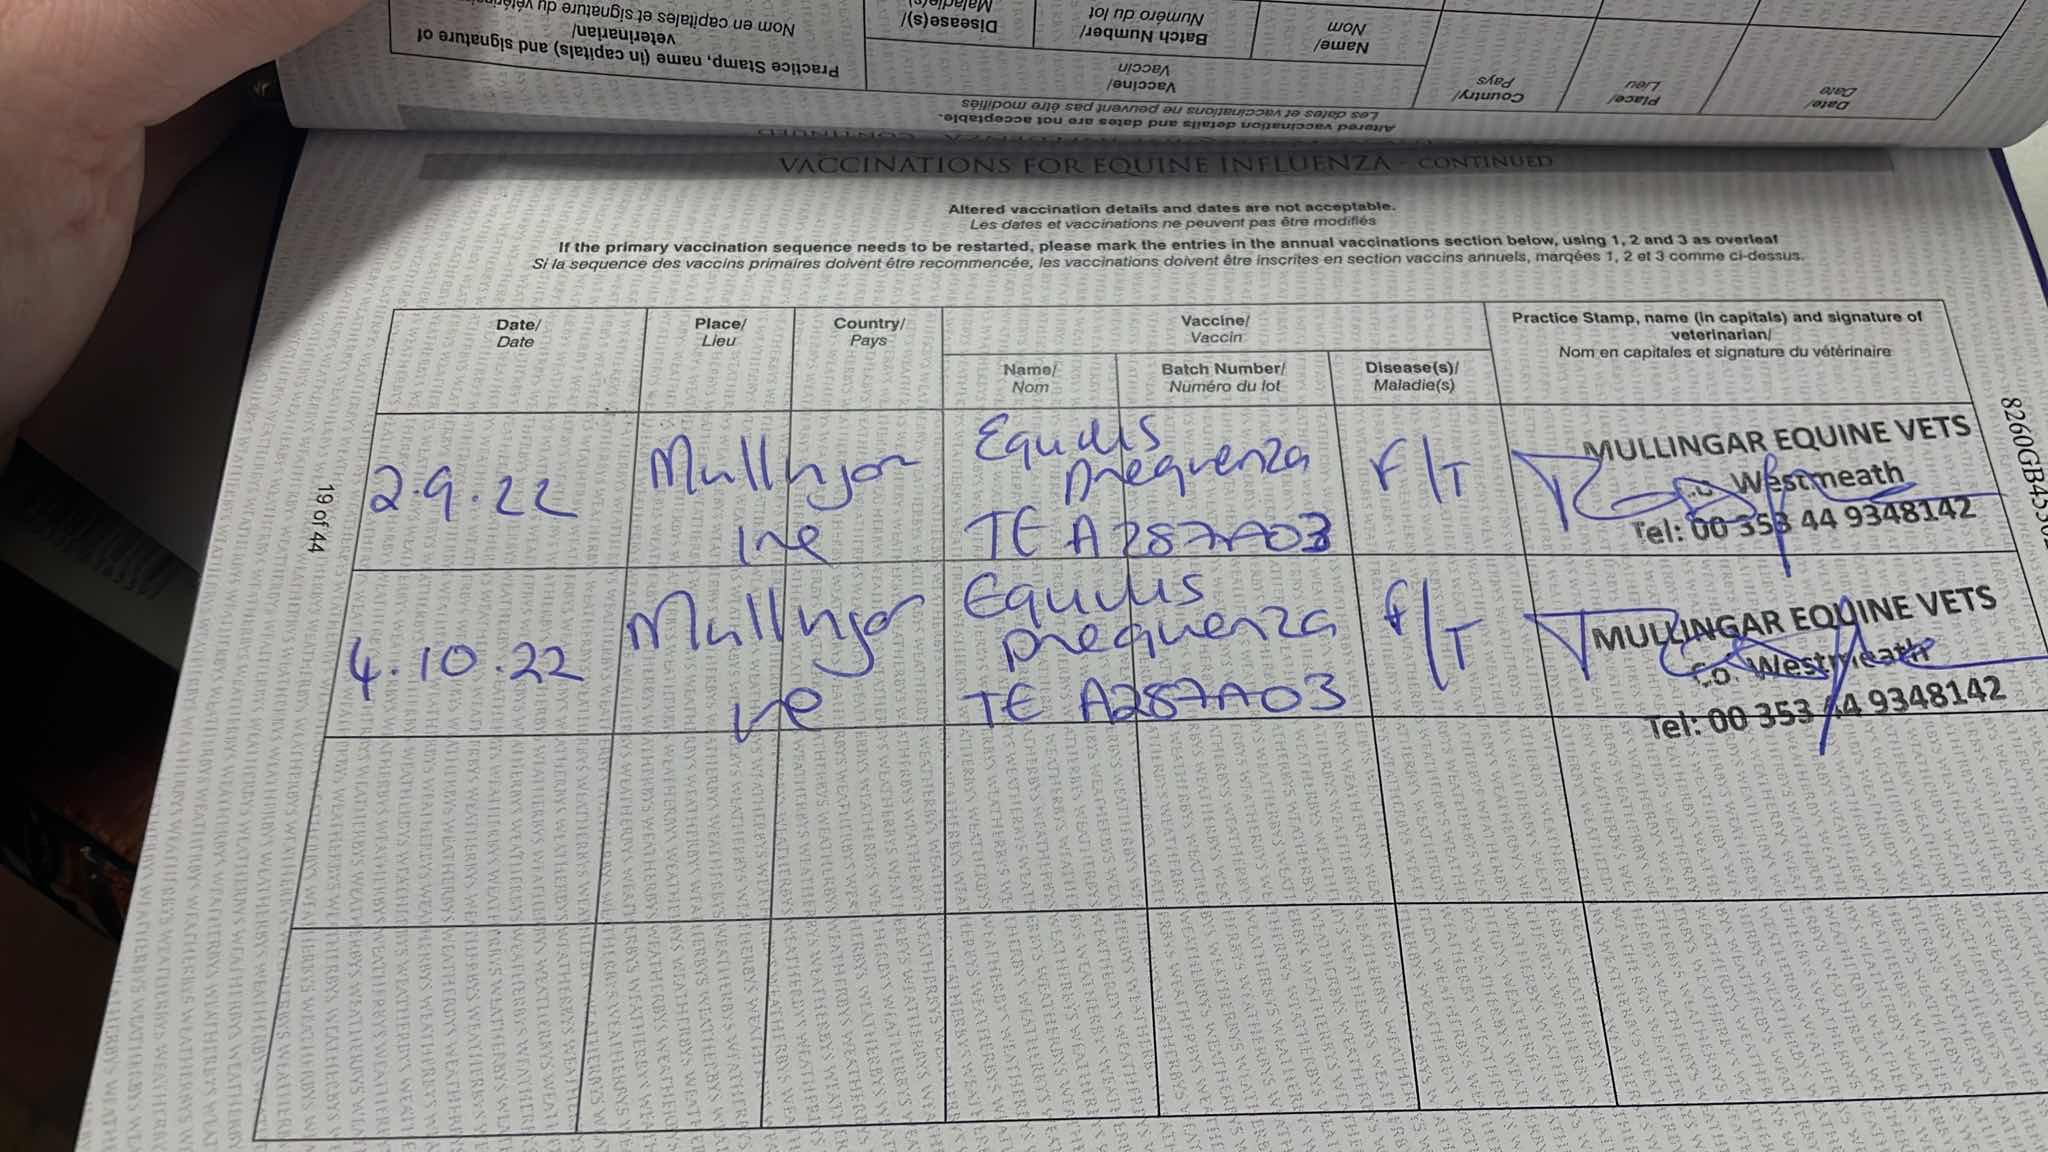 Practice Stamp, name (in capitals) and signature of
veterinarian/
Nom en capitales et signature du vétérinaire
Vaccine/
Vaccin
Disease(s)/
Maladie(s)
Batch Number/
Numéro du lot
Name/
Nom
Country/
Pays
Place/
Lieu
Date/
Date
Altered vaccination details and dates are not acceptable.
Les dates et vaccinations ne peuvent pas être modifiés
VACCINATIONS FOR EQUINE INFLUENZA - CONTINUED
Altered vaccination details and dates are not acceptable.
Les dates et vaccinations ne peuvent pas être modifiés
If the primary vaccination sequence needs to be restarted, please mark the entries in the annual vaccinations section below, using 1, 2 and 3 as overleaf
Si la sequence des vaccins primaires doivent être recommencée, les vaccinations doivent être inscrites en section vaccins annuels, marqées 1, 2 et 3 comme ci-dessus.
Date/
Date
Place/
Lieu
Country/
Pays
Vaccine/
Vaccin
Name/
Nom
Batch Number/
Numéro du lot
Disease(s)/
Maladie(s)
Practice Stamp, name (in capitals) and signature of
veterinarian/
Nom en capitales et signature du vétérinaire
2.9.22
Mullingar
Ire
Equilis
prequenza
TE A287A03
F/T
MULLINGAR EQUINE VETS
Co. Westmeath
Tel: 00 353 44 9348142
4.10.22
Mullingar
Ire
Equilis
prequenza
TE A287A03
F/T
MULLINGAR EQUINE VETS
Co. Westmeath
Tel: 00 353 44 9348142
19 of 44